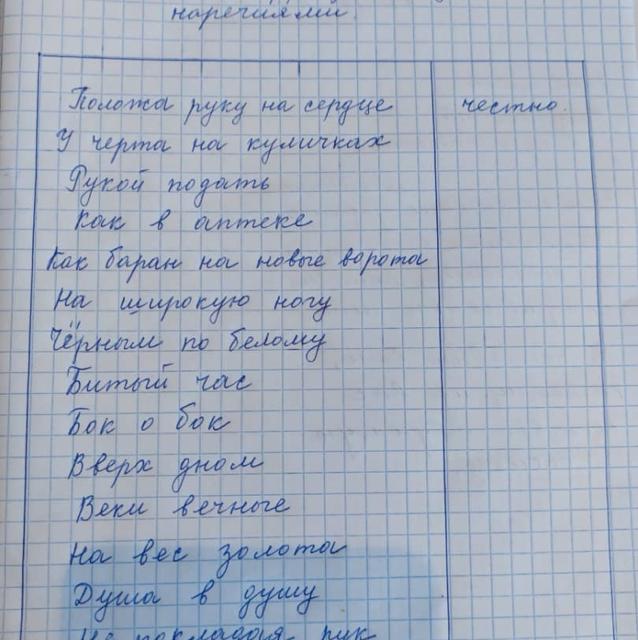 наречиями.
Положа руку на сердце честно.
У черта на куличках
Рукой подать
Как в аптеке
Как баран на новые ворота
На широкую ногу
Чёрным по белому
Битый час
Бок о бок
Вверх дном
Веки вечные
На вес золота
Душа в душу
Не покладая рук